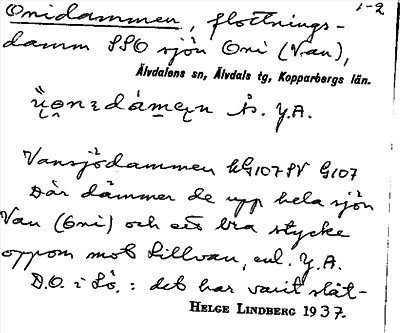 Onidammen, flottnings- 1-2
damm SSO sjön Oni (Van),
Älvdalens sn, Älvdals tg, Kopparbergs län.
Y.A.
Vansjödammen KG107SV G107
Där dämmer de upp hela sjön
Van (Oni) och ett bra stycke
oppom mot Lillvan, enl. Y.A.
D.O. i Lö.: det har varit slåt-
HELGE LINDBERG 1937.